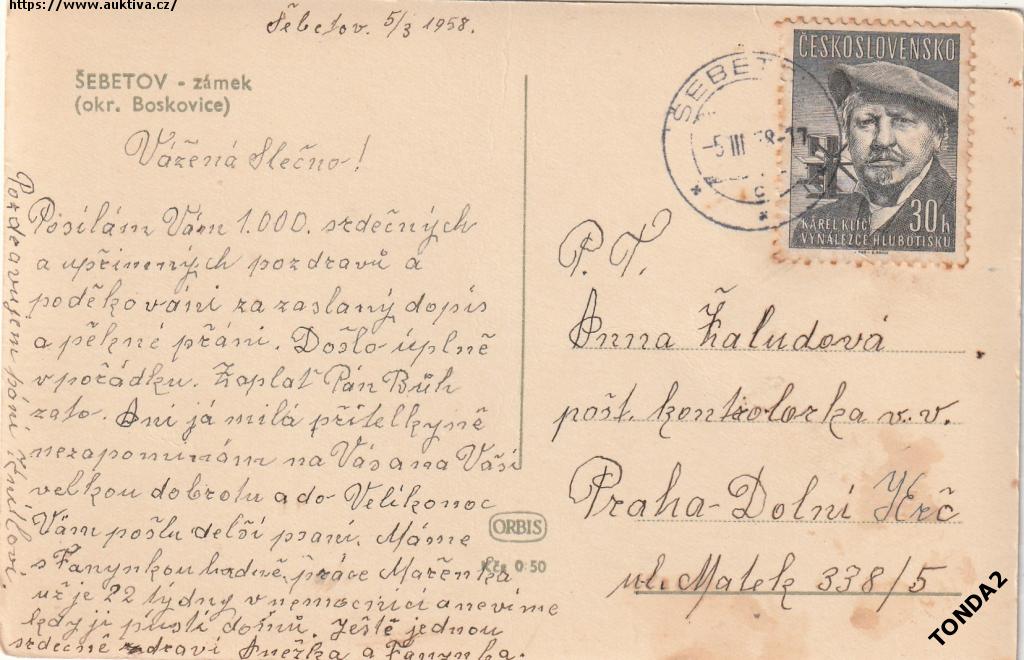 https://www.auktiva.cz/
Šebetov. 5/3 1958.
ŠEBETOV - zámek
(okr. Boskovice)
Vážená Slečno!
Posílám Vám 1.000. srdečných
a upřimných pozdravů a
poděkováni za zaslaný dopis
a pěkné přáni. Došlo úplně
v pořádku. Zaplať Pán Bůh
zato. Ani já milá přítelkyně
nezapominám na Vás a na Vaši
velkou dobrotu a do Velikonoc
Vám pošlu delší psaní. Máme
s Fanynkou hodně práce Mařenka
už je 22 týdny v nemocnici a nevíme
kdy ji pustí domů. Ještě jednou
srdečně zdraví Anežka a Fanynka.
Pozdravujem paní
ORBIS
Kčs 0·50
ŠEBET
-5 III 58-11
ČESKOSLOVENSKO
KAREL KLÍČ
VYNÁLEZCE HLUBOTISKU
30h
P. T.
Anna Žaludová
pošt. kontrolorka v. v.
Praha-Dolní Krč
ul. Matek 338/5
TONDA2